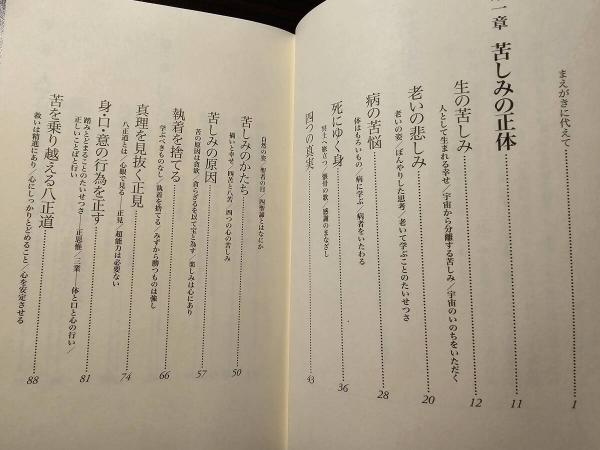 まえがきに代えて……1
一章 苦しみの正体……11
生の苦しみ……12
人として生まれる幸せ/宇宙から分離する苦しみ/宇宙のいのちをいただく
老いの悲しみ……20
老いの姿/ぼんやりした思考/老いて学ぶことのたいせつさ
病の苦悩……28
体はもろいもの/病に学ぶ/病者をいたわる
死にゆく身……36
浄土へ旅立つ/骸骨の歌/感謝のまなざし
四つの真実……43
自然の姿、聖者の目/四聖諦とはなにか
苦しみのかたち……50
禍いと幸せ/四苦と八苦/四つの心の苦しみ
苦しみの原因……57
苦の原因は貪欲/貪らざるを以て宝と為す/楽しみは心にあり
執着を捨てる……66
学ぶべきものなし/執着を捨てる/みずから勝つものは強し
真理を見抜く正見……74
八正道とは/心眼で見る——正見/超能力は必要ない
身・口・意の行為を正す……81
踏みとどまることのたいせつさ——正思惟/三業——体と口と心の行い/
正しいことばと行い
苦を乗り越える八正道……88
救いは精進にあり/心にしっかりとどめること/心を安定させる